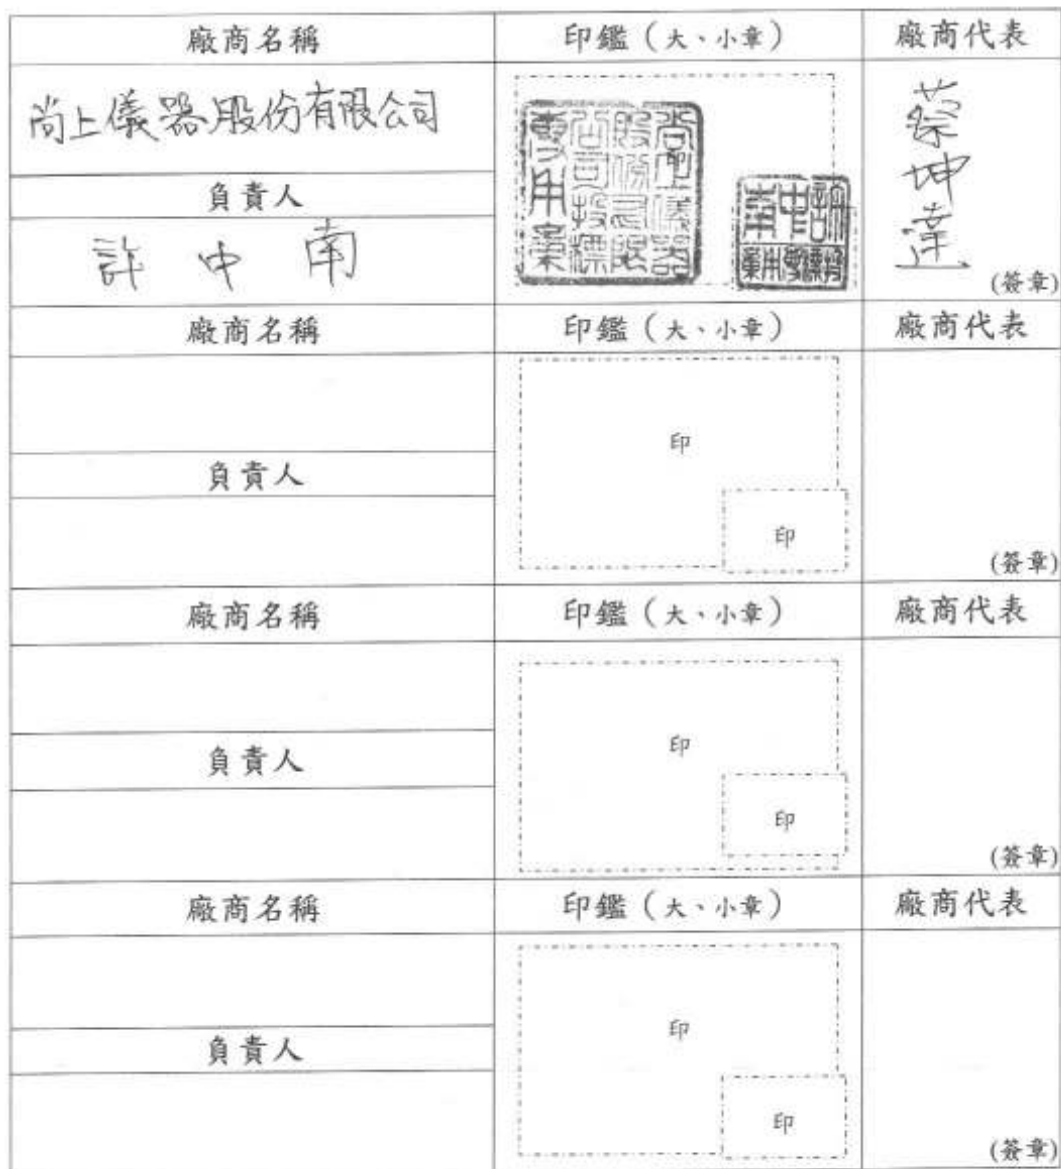 廠商名稱 印鑑（大、小章） 廠商代表
尚上儀器股份有限公司
尚上儀器
股份有限
公司投標
專用章
印
許中南
投標專用章
蔡坤達
負責人
許中南
(簽章)
廠商名稱 印鑑（大、小章） 廠商代表
印
負責人
印
(簽章)
廠商名稱 印鑑（大、小章） 廠商代表
印
負責人
印
(簽章)
廠商名稱 印鑑（大、小章） 廠商代表
印
負責人
印
(簽章)